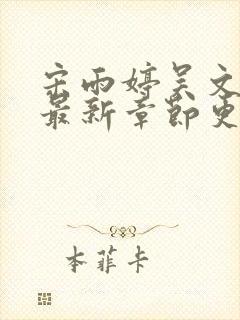 宋雨婷吴文
最新章节更
本菲卡